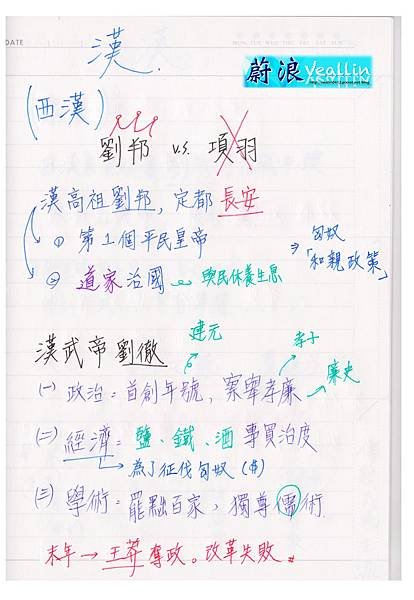 DATE
漢
蔚浪 Yeallin
(西漢)
劉邦 v.s. 項羽
漢高祖劉邦, 定都長安
① 第1個平民皇帝
⇒ 匈奴「和親政策」
② 道家治國 與民休養生息
建元
漢武帝劉徹
孝子
(一) 政治=首創年號, 察舉孝廉 → 廉吏
(二) 經濟=鹽、鐵、酒專買治度
為了征伐匈奴 ($)
(三) 學術=罷黜百家, 獨尊儒術.
末年→王莽奪政。改革失敗